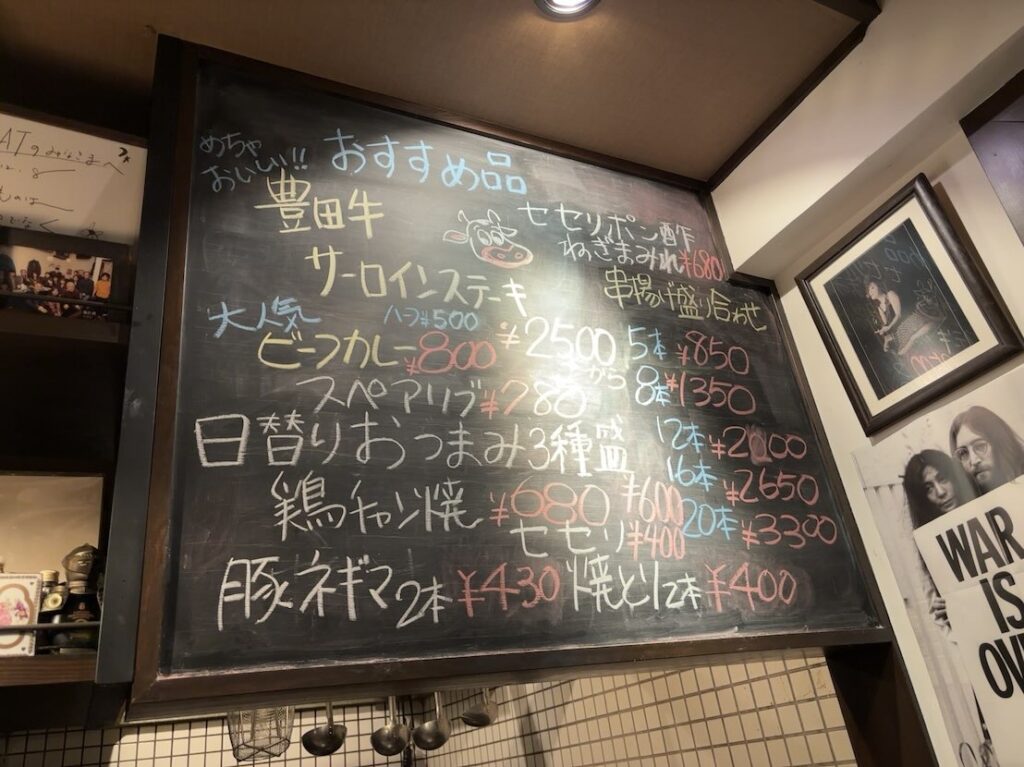 めちゃ
おいしい!!
おすすめ品
豊田牛
サーロインステーキ
¥2500
から
大人気
ハーフ¥500
ビーフカレー ¥800
スペアリブ ¥780
日替りおつまみ3種盛
¥600
鶏チャン焼 ¥680
セセリ ¥400
豚ネギマ 2本 ¥430
焼とり 2本 ¥400
セセリポン酢
ねぎまみれ ¥680
串揚げ盛り合わせ
5本 ¥850
8本 ¥1350
12本 ¥2000
16本 ¥2650
20本 ¥3300
WAR
IS
OV